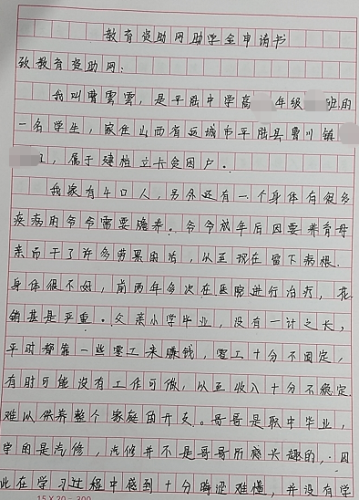 教育资助网助学金申请书
致教育资助网:
我叫曹雪雪,是平陆中学高 年级 班的
一名学生,家住山西省运城市平陆县曹川镇
,属于建档立卡贫困户。
我家有4口人,另外还有一个身体有很多
疾病的爷爷需要赡养。爷爷成年后因要养育母
亲而干了许多劳累的活,从至现在留下病根,
身体很不好,前两年多次在医院进行治疗,花
销甚是严重。父亲小学毕业,没有一计之长,
平时都靠一些零工来赚钱,零工十分不固定,
有时可能没有工作可做,从至收入十分不稳定
难以供养整个家庭的开支。哥哥是职中毕业,
学的是汽修,汽修并不是哥哥所感兴趣的,因
此在学习过程中感到十分晦涩难懂,并没有学
15×20=300